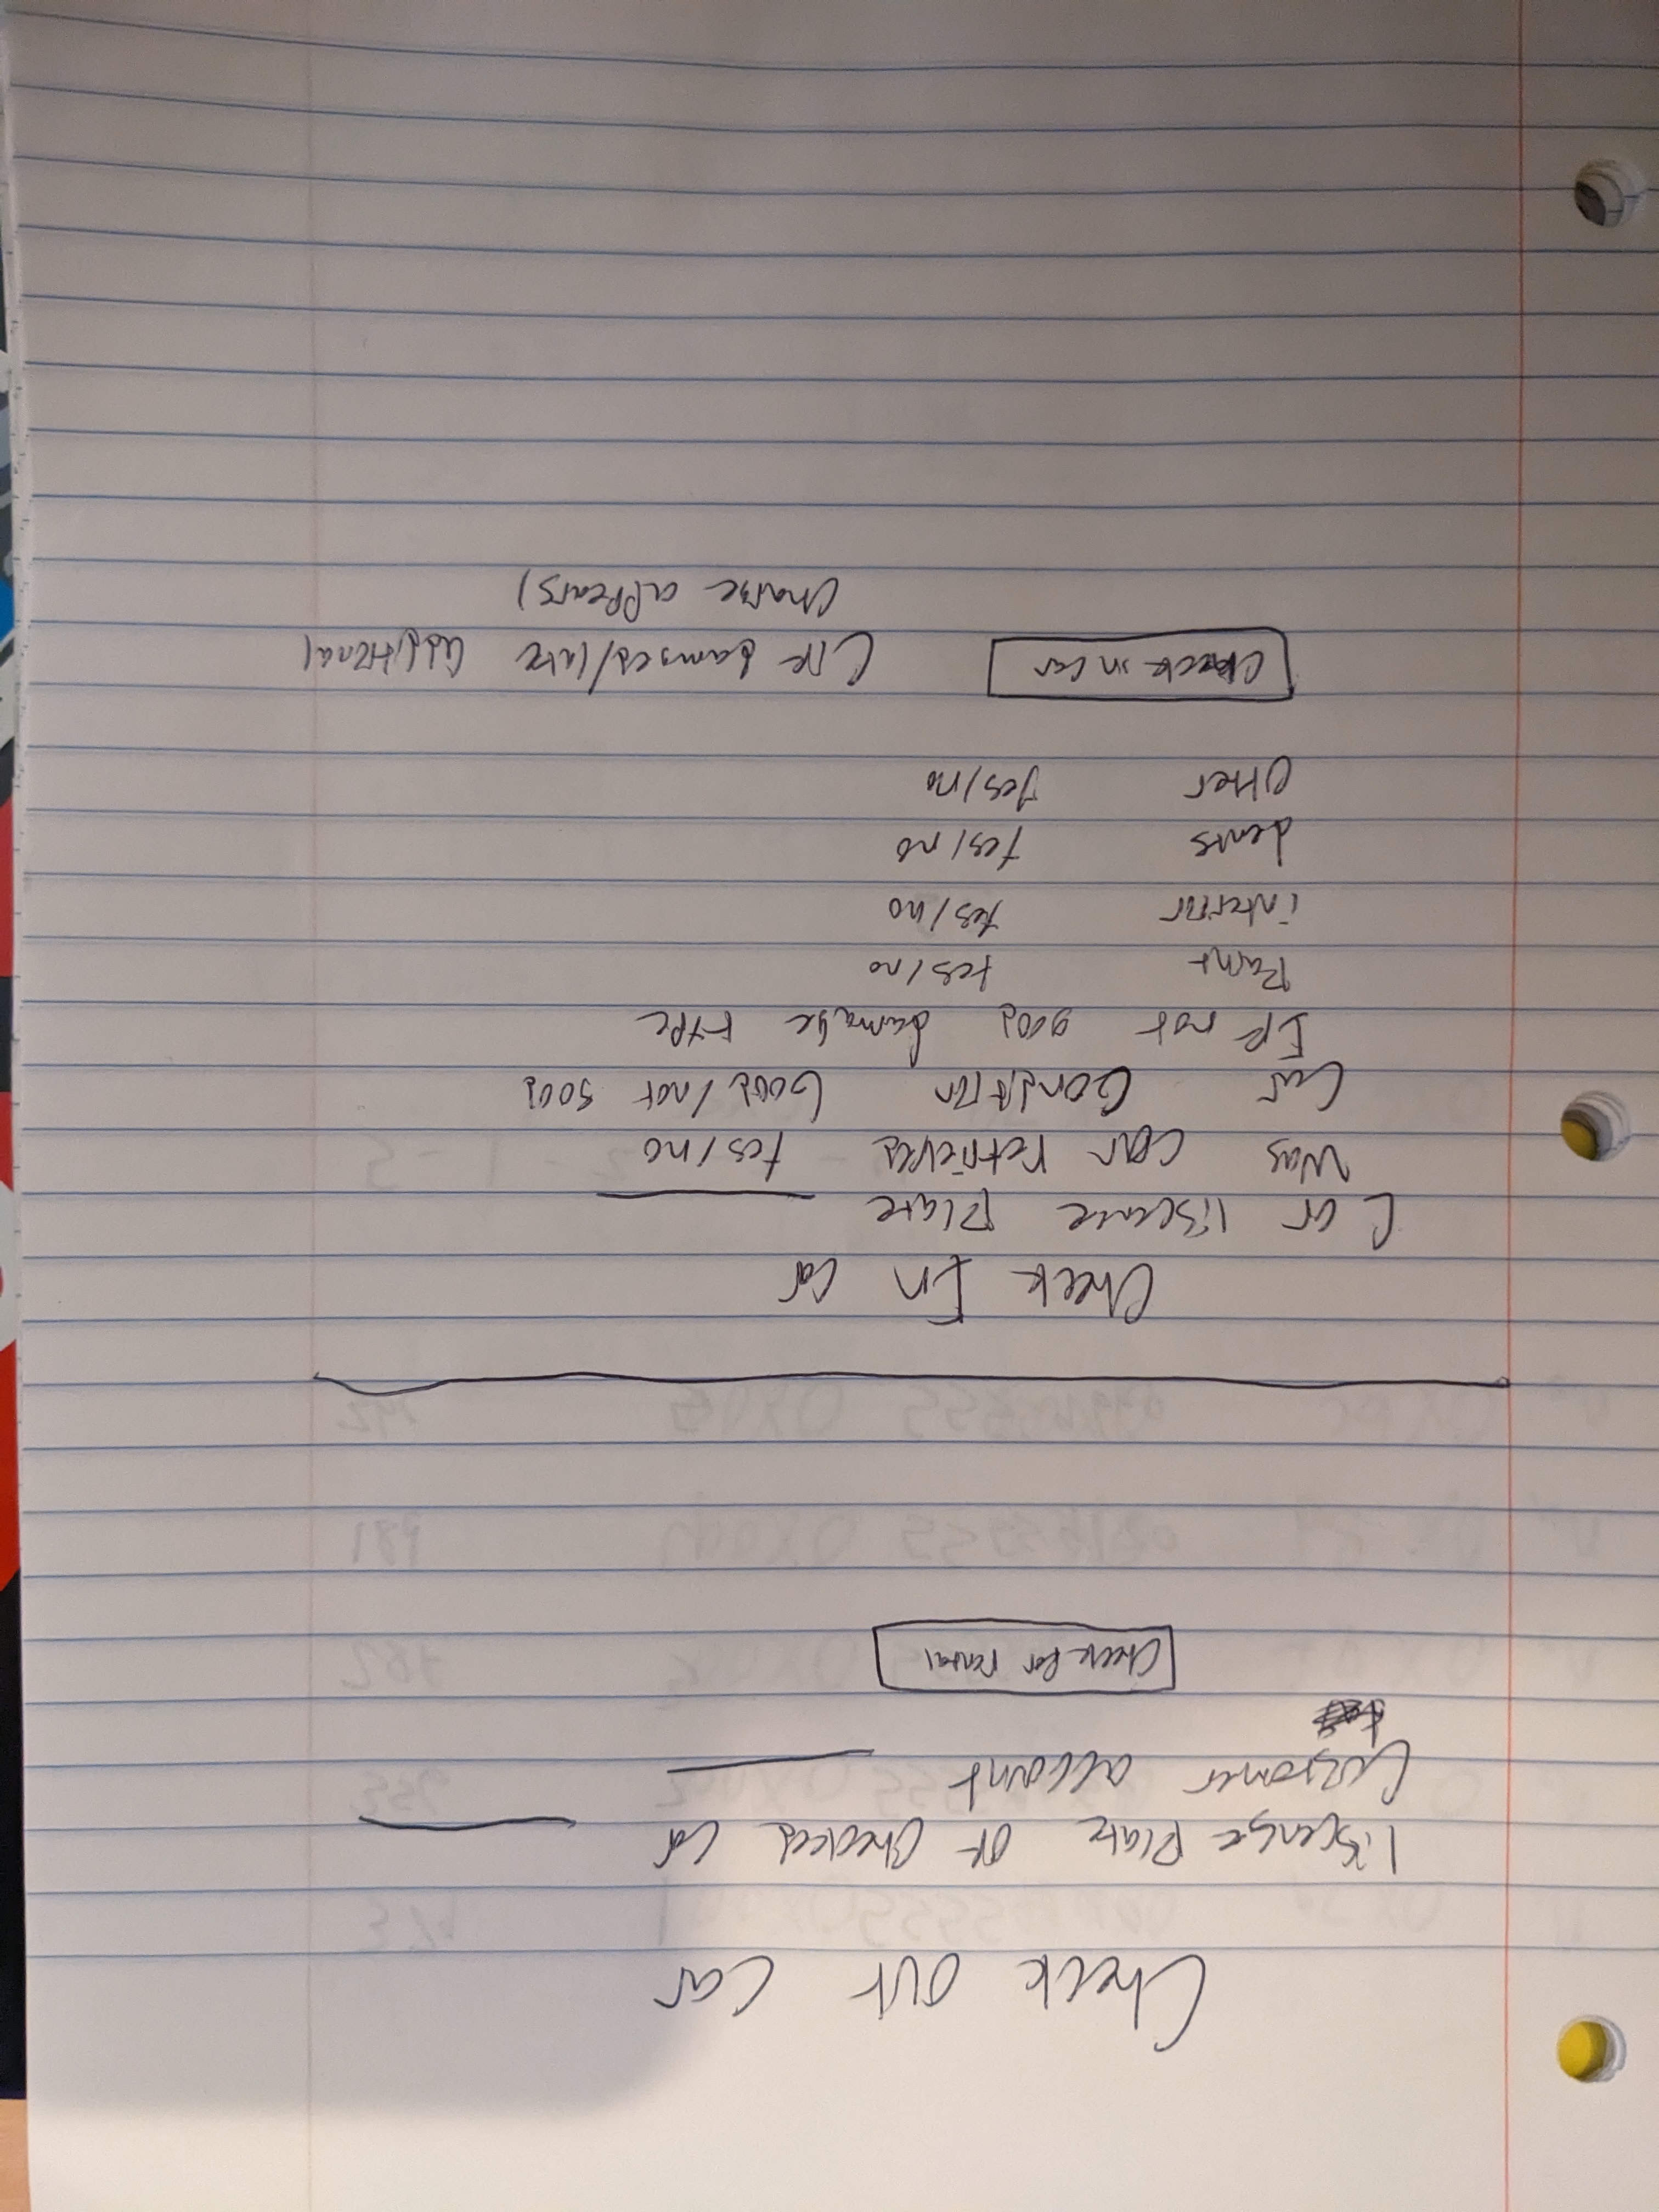 Check out Car
liscense Plate of Checked Car
Customer account
Check for rental
Check In Car
Car liscense Plate
Was car retrieved yes/no
Car Condition Good/not good
If not good damage type
Paint yes/no
interior yes/no
dents yes/no
other yes/no
Check in car (If damaged/late additional
charge appears)